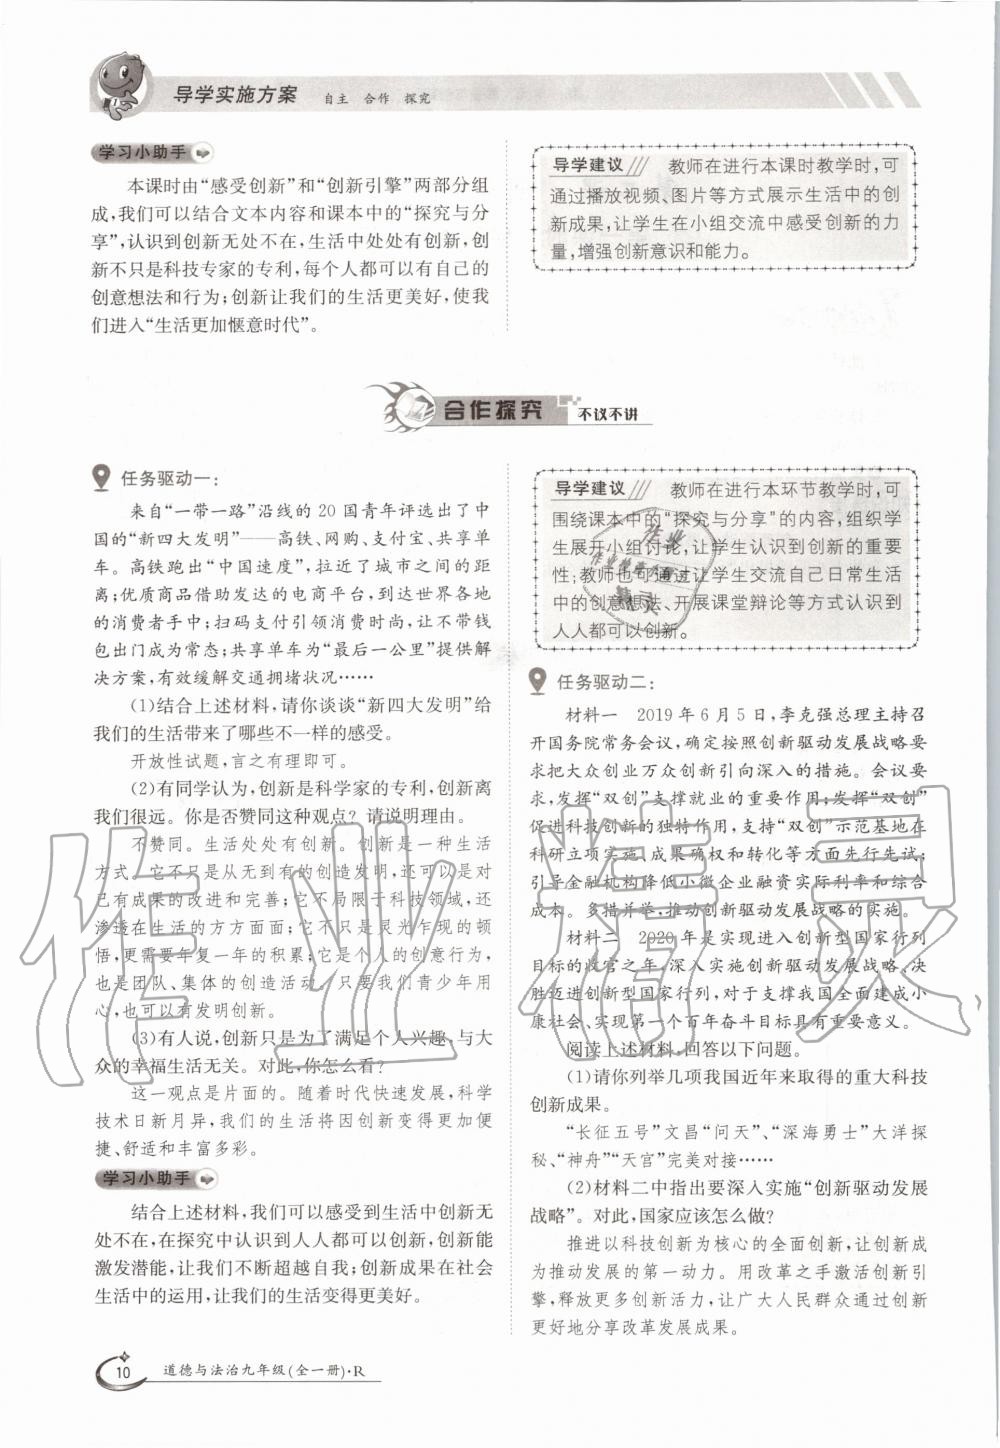 导学实施方案 自主 合作 探究
学习小助手
本课时由“感受创新”和“创新引擎”两部分组
成,我们可以结合文本内容和课本中的“探究与分
享”,认识到创新无处不在,生活中处处有创新,创
新不只是科技专家的专利,每个人都可以有自己的
创意想法和行为;创新让我们的生活更美好,使我
们进入“生活更加惬意时代”。
导学建议 教师在进行本课时教学时,可
通过播放视频、图片等方式展示生活中的创
新成果,让学生在小组交流中感受创新的力
量,增强创新意识和能力。
合作探究 不议不讲
任务驱动一:
来自“一带一路”沿线的 20 国青年评选出了中
国的“新四大发明”——高铁、网购、支付宝、共享单
车。高铁跑出“中国速度”,拉近了城市之间的距
离;优质商品借助发达的电商平台,到达世界各地
的消费者手中;扫码支付引领消费时尚,让不带钱
包出门成为常态;共享单车为“最后一公里”提供解
决方案,有效缓解交通拥堵状况……
(1)结合上述材料,请你谈谈“新四大发明”给
我们的生活带来了哪些不一样的感受。
开放性试题,言之有理即可。
(2)有同学认为,创新是科学家的专利,创新离
我们很远。你是否赞同这种观点？请说明理由。
不赞同。生活处处有创新。创新是一种生活
方式,它不只是从无到有的创造发明,还可以是对
已有成果的改进和完善;它不局限于科技领域,还
渗透在生活的方方面面;它不只是灵光乍现的顿
悟,更需要年复一年的积累;它是个人的创意行为,
也是团队、集体的创造活动。只要我们青少年用
心,也可以有发明创新。
(3)有人说,创新只是为了满足个人兴趣,与大
众的幸福生活无关。对此,你怎么看?
这一观点是片面的。随着时代快速发展,科学
技术日新月异,我们的生活将因创新变得更加便
捷、舒适和丰富多彩。
学习小助手
结合上述材料,我们可以感受到生活中创新无
处不在,在探究中认识到人人都可以创新,创新能
激发潜能,让我们不断超越自我;创新成果在社会
生活中的运用,让我们的生活变得更美好。
导学建议 教师在进行本环节教学时,可
围绕课本中的“探究与分享”的内容,组织学
生展开小组讨论,让学生认识到创新的重要
性;教师也可通过让学生交流自己日常生活
中的创意想法、开展课堂辩论等方式认识到
人人都可以创新。
任务驱动二:
材料一 2019 年 6 月 5 日,李克强总理主持召
开国务院常务会议,确定按照创新驱动发展战略要
求把大众创业万众创新引向深入的措施。会议要
求,发挥“双创”支撑就业的重要作用;发挥“双创”
促进科技创新的独特作用,支持“双创”示范基地在
科研立项实施、成果确权和转化等方面先行先试;
引导金融机构降低小微企业融资实际利率和综合
成本。多措并举,推动创新驱动发展战略的实施。
材料二 2020 年是实现进入创新型国家行列
目标的收官之年,深入实施创新驱动发展战略,决
胜迈进创新型国家行列,对于支撑我国全面建成小
康社会、实现第一个百年奋斗目标具有重要意义。
阅读上述材料,回答以下问题。
(1)请你列举几项我国近年来取得的重大科技
创新成果。
“长征五号”文昌“问天”、“深海勇士”大洋探
秘、“神舟”“天宫”完美对接……
(2)材料二中指出要深入实施“创新驱动发展
战略”。对此,国家应该怎么做?
推进以科技创新为核心的全面创新,让创新成
为推动发展的第一动力。用改革之手激活创新引
擎,释放更多创新活力,让广大人民群众通过创新
更好地分享改革发展成果。
10 道德与法治九年级(全一册)·R
作业精灵